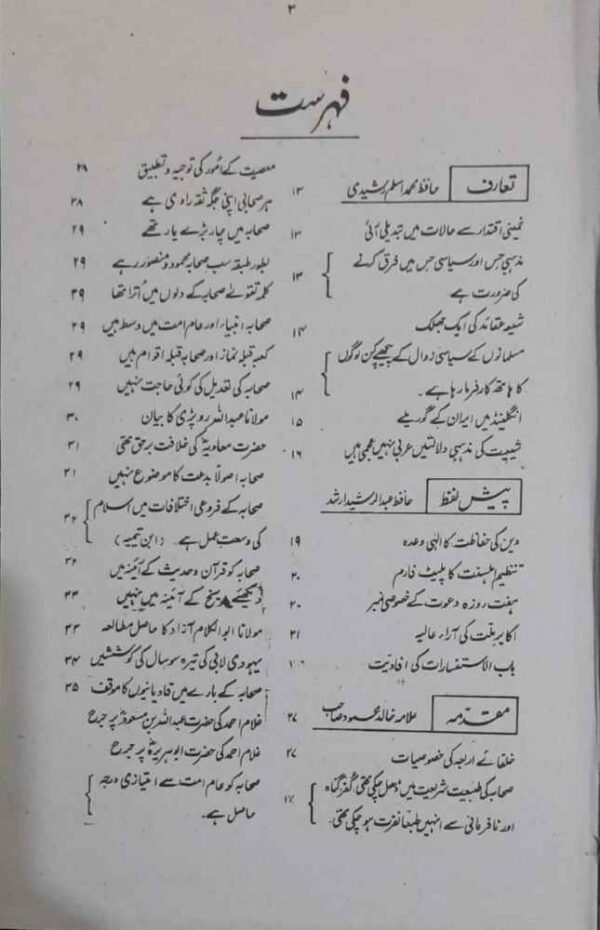 ۳
فہرست
تعارف حافظ محمد اسلم رشیدی ۱۳
خمینی اقتدار سے حالات میں تبدیلی آئی ۱۳
مذہبی حس اور سیاسی حس میں فرق کرنے
کی ضرورت ہے ۱۳
شیعہ عقائد کی ایک جھلک ۱۴
مسلمانوں کے سیاسی زوال کے پیچھے کن لوگوں
کا ہاتھ کار فرما رہا ہے۔ ۱۴
انگلینڈ میں ایران کے گوریلے ۱۵
شیعیت کی مذہبی دلالتیں عربی نہیں عجمی ہیں ۱۶
پیش لفظ حافظ عبدالرشید ارشد
دین کی حفاظت کا الٰہی وعدہ ۱۹
تنظیم اہلسنت کا پلیٹ فارم ۲۰
ہفت روزہ دعوت کے خصوصی نمبر ۲۰
اکابر ملت کی آراء عالیہ ۲۱
باب الاستفسارات کی افادیت
مقدمہ علامہ خالد محمود صاحب ۲۷
خلفائے اربعہ کی خصوصیات ۲۷
صحابہ کی طبیعت شریعت میں ڈھل چکی تھی کفر گناہ
اور نافرمانی سے انہیں طبعاً نفرت ہو چکی تھی۔
معصیت کے امور کی توجیہ و تطبیق ۲۹
ہر صحابی اپنی جگہ ثقہ راوی ہے ۲۸
صحابہ میں چار بڑے یار تھے ۲۹
بطور طبقہ سب صحابہ محمود و منصور رہے ۲۹
کلمہ تقویٰ صحابہ کے دلوں میں اترا تھا ۲۹
صحابہ انبیاء اور عام امت میں وسط ہیں ۲۹
کعبہ قبلہ نماز اور صحابہ قبلہ اقوام ہیں ۲۹
صحابہ کی تعدیل کی کوئی حاجت نہیں ۲۹
مولانا عبداللہ روپڑی کا بیان ۳۰
حضرت معاویہؓ کی خلافت برحق تھی ۳۱
صحابہ اصولاً بدعت کا موضوع نہیں ۳۱
صحابہ کے فروعی اختلافات میں اسلام
کی وسعت عمل ہے۔ (ابن تیمیہ) ۳۲
صحابہ کو قرآن و حدیث کے آئینہ میں
دیکھئے تاریخ کے آئینہ میں نہیں ۳۳
مولانا ابو الکلام آزاد کا حاصل مطالعہ ۳۳
یہودی لابی کی تیرہ سو سال کی کوششیں ۳۴
صحابہ کے بارے میں قادیانیوں کا موقف ۳۵
غلام احمد کی حضرت عبداللہ بن مسعودؓ پر جرح
غلام احمد کی حضرت ابو ہریرہؓ پر جرح
صحابہ کو عام امت سے امتیازی درجہ
حاصل ہے۔